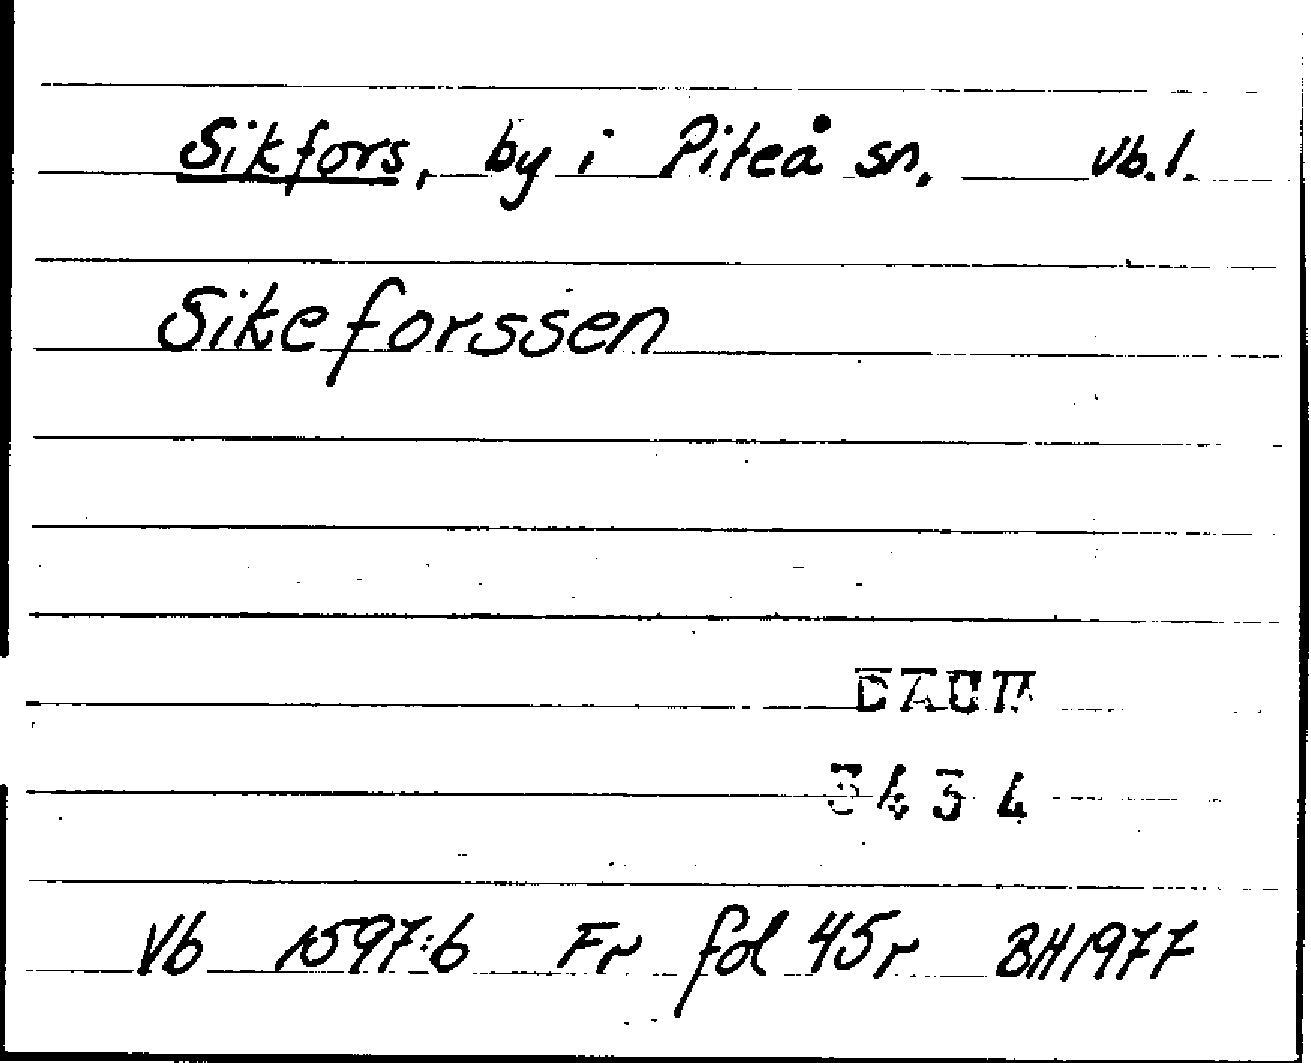 Sikfors, by i Piteå sn. Vb.l.
Sikeforssen
DAUM
3434
Vb 1597:6 Fr fol 45r BH1977